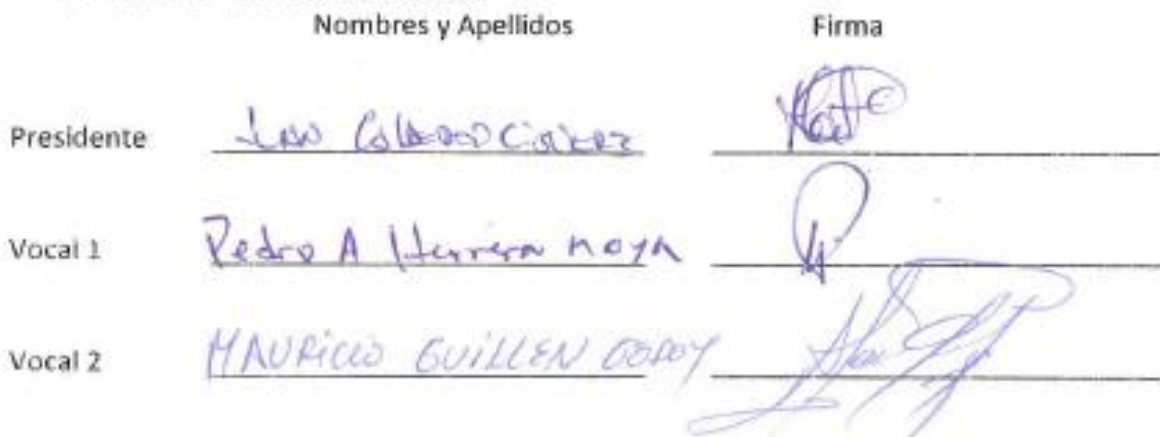 Nombres y Apellidos Firma
Presidente
Vocal 1 Pedro A Herrera Moya
Vocal 2 MAURICIO GUILLEN GODOY